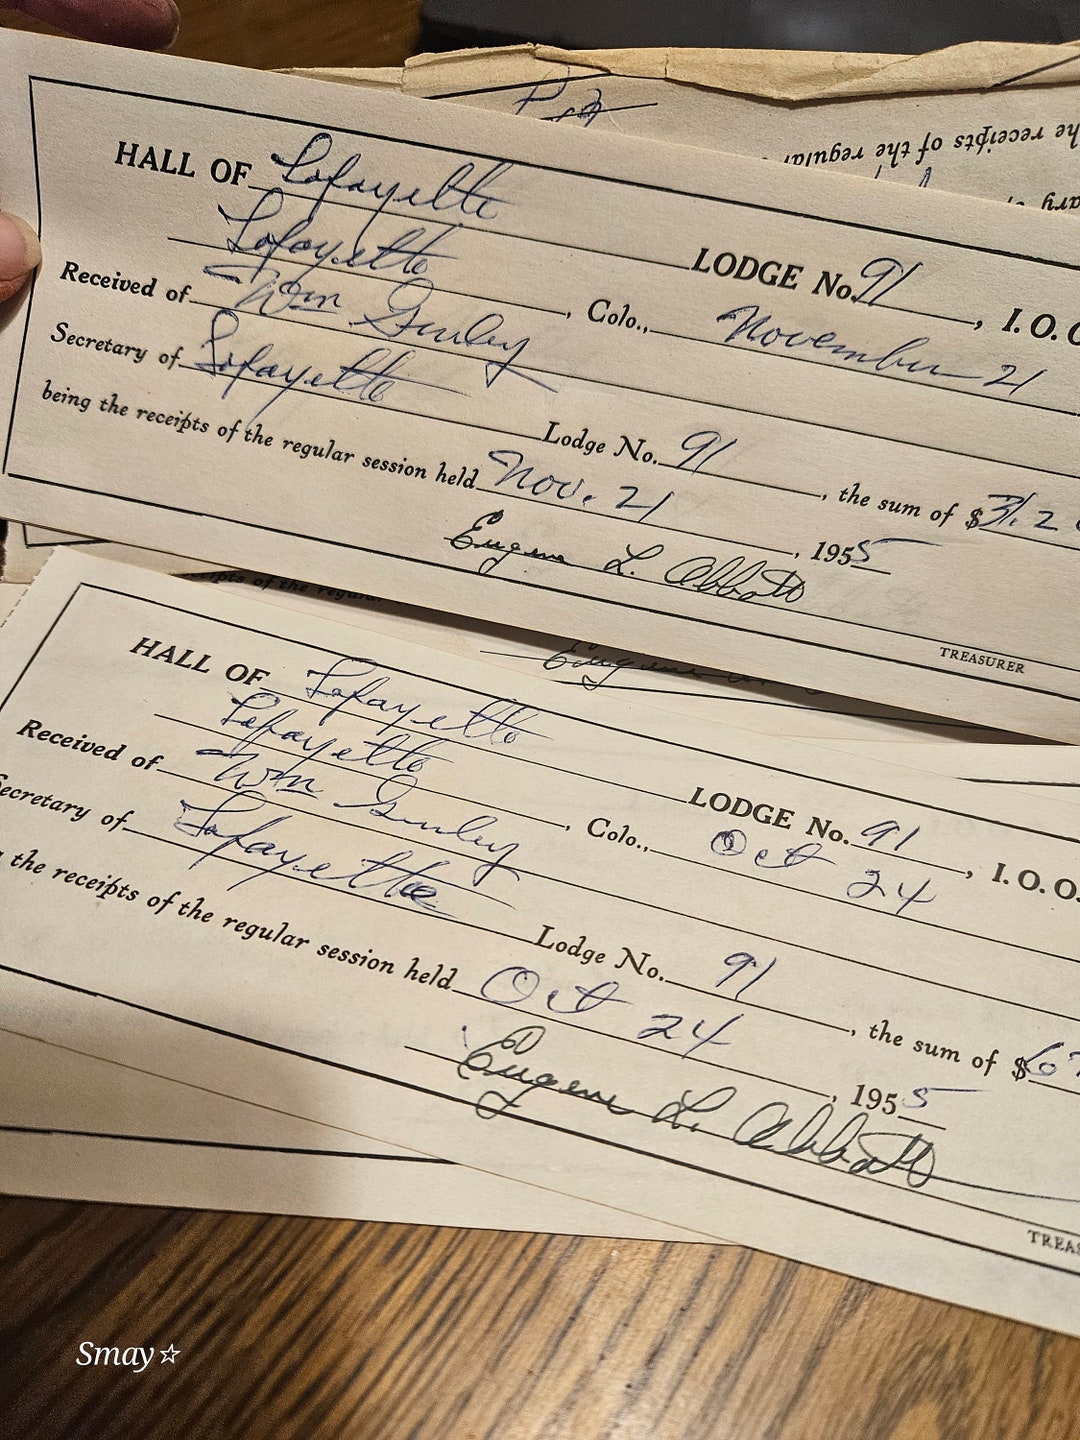 he receipts of the regular
HALL OF Lafayette LODGE No. 91, I.O.O
Lafayette, Colo., November 21
Received of Wm Gurley
Secretary of Lafayette Lodge No. 91, the sum of $31.2
being the receipts of the regular session held Nov. 21, 1955
Eugene L. Abbott
TREASURER
ipts of the regula
Eugene
HALL OF Lafayette LODGE No. 91, I.O.O.
Lafayette, Colo., Oct 24
Received of Wm Gurley
ecretary of Lafayette Lodge No. 91, the sum of $67
the receipts of the regular session held Oct 24, 1955
Eugene L. Abbott
TREAS
Smay☆